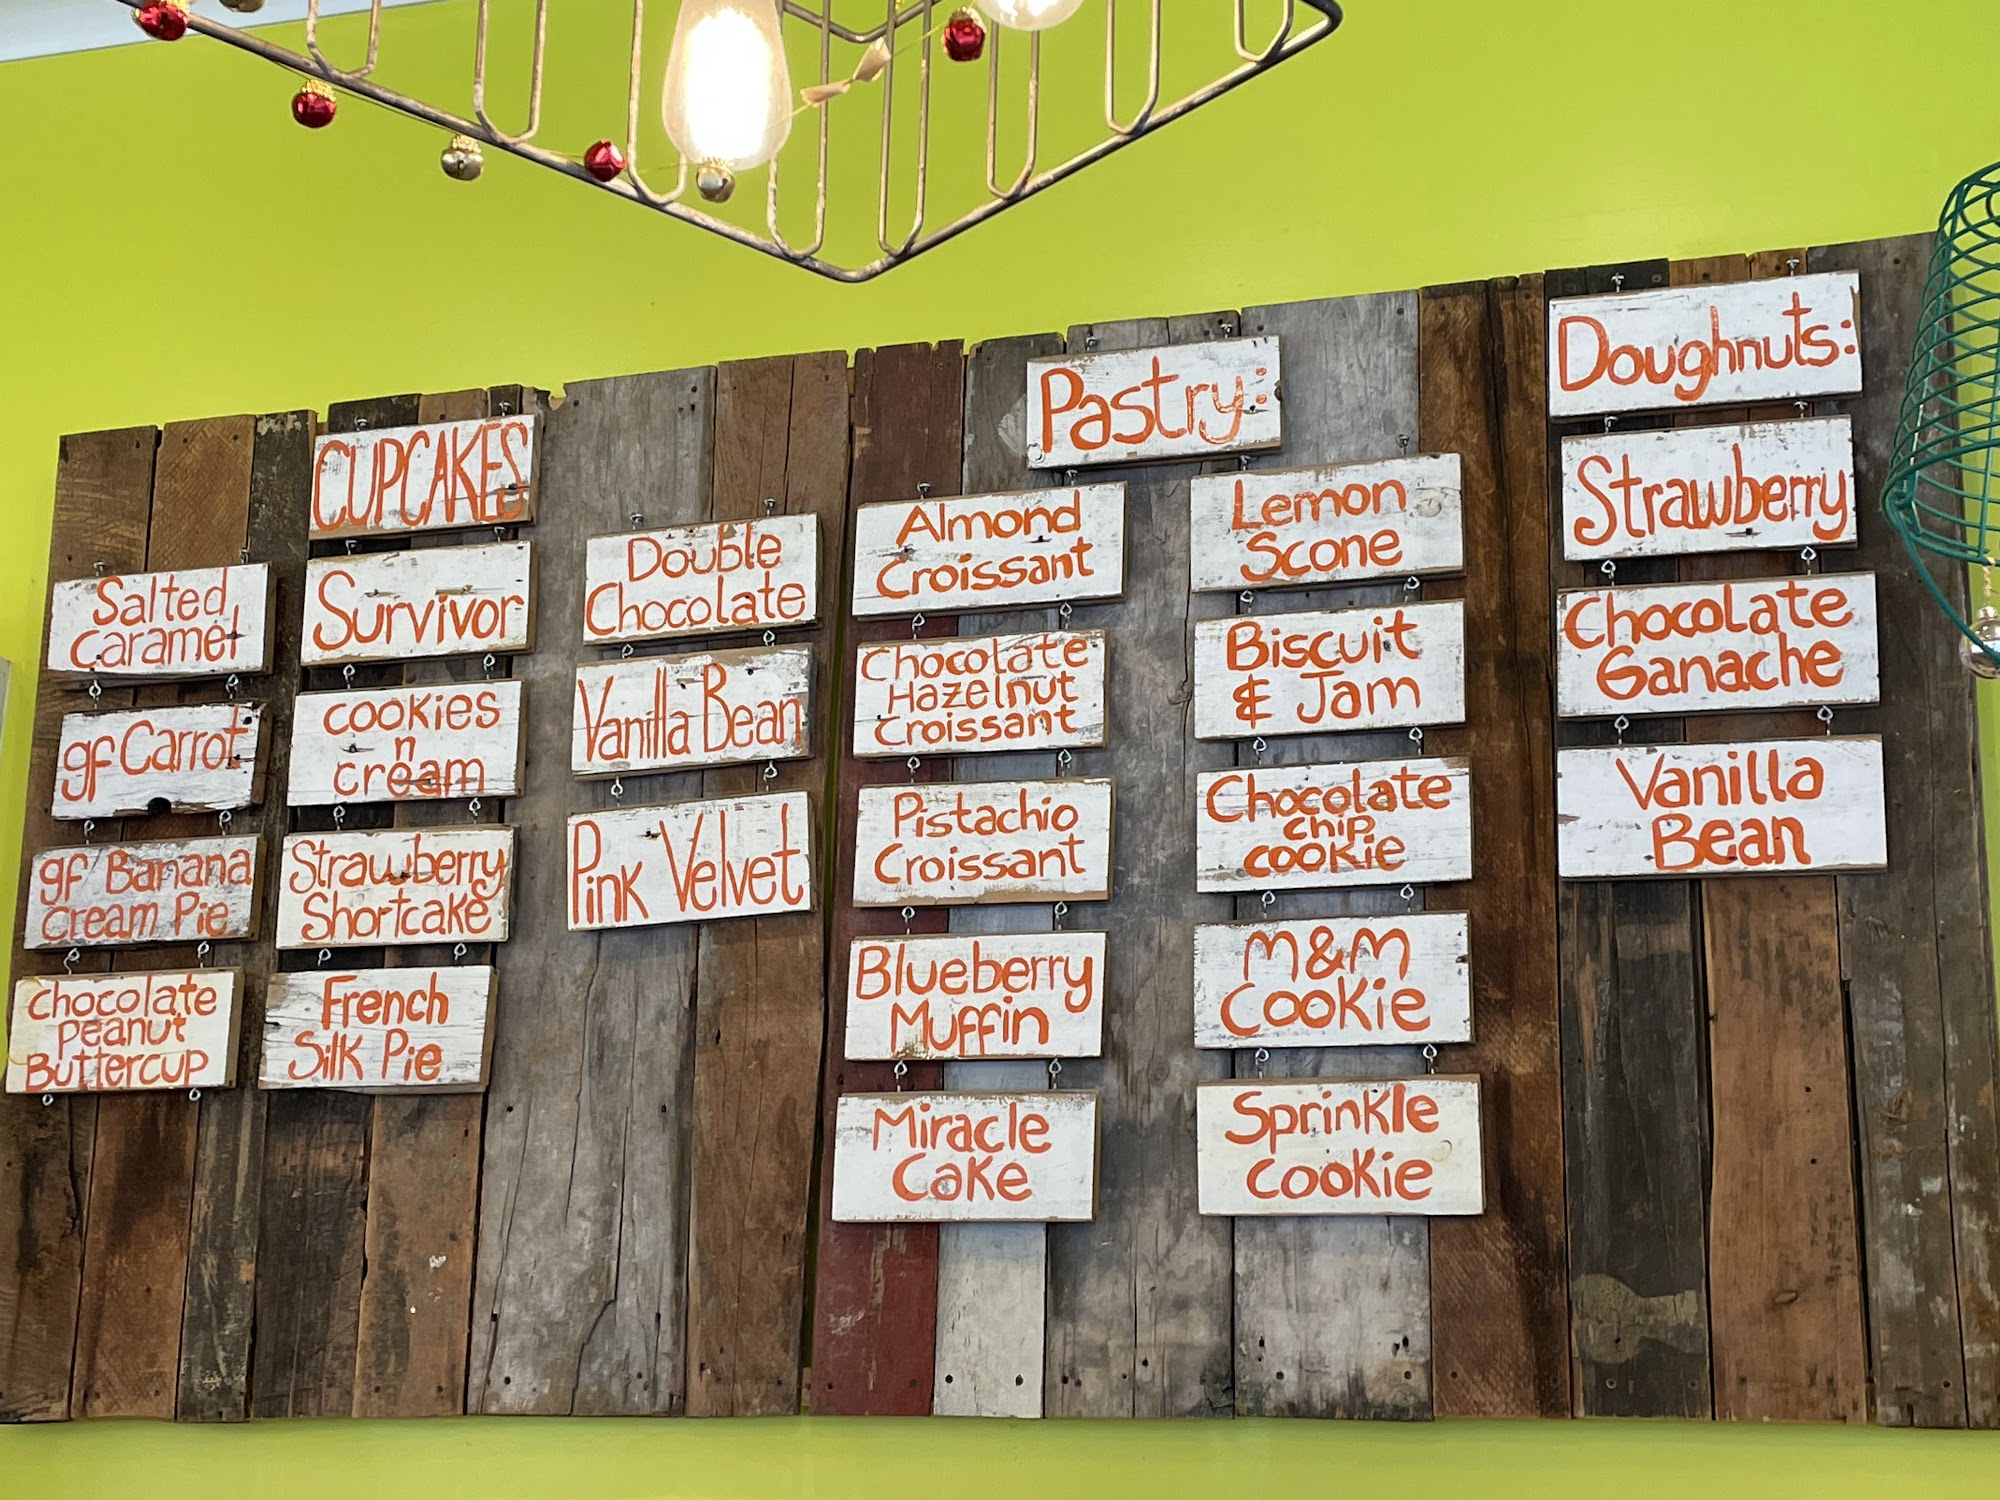 CUPCAKES
Salted
Caramel
gf Carrot
gf Banana
Cream Pie
Chocolate
Peanut
Buttercup
Survivor
Cookies
n
cream
Strawberry
Shortcake
French
Silk Pie
Double
Chocolate
Vanilla Bean
Pink Velvet
Pastry:
Almond
Croissant
Chocolate
Hazelnut
Croissant
Pistachio
Croissant
Blueberry
Muffin
Miracle
Cake
Lemon
Scone
Biscuit
& Jam
Chocolate
chip
cookie
M&M
Cookie
Sprinkle
Cookie
Doughnuts:
Strawberry
Chocolate
Ganache
Vanilla
Bean